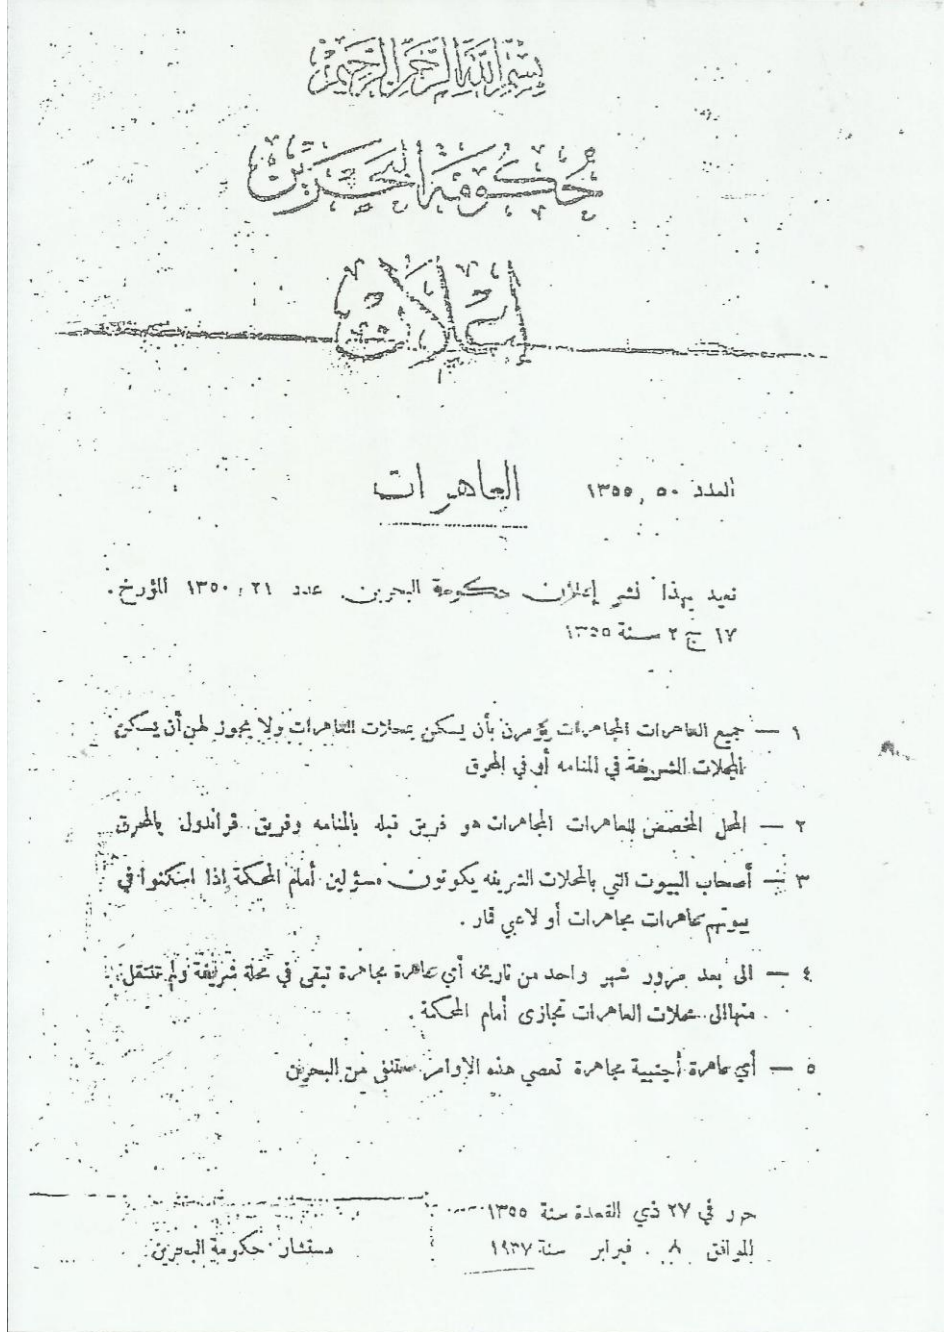 بسم الله الرحمن الرحيم
حكومة البحرين
إعلان
العدد ٥٠ / ١٣٥٥ العاهرات
نعيد بهذا نشر إعلان حكومة البحرين عدد ٢١ / ١٣٥٠ المؤرخ.
١٧ ج ٢ سنة
١ — جميع العاهرات المجاهرات يؤمرن بأن يسكن بمحلات العاهرات ولا يجوز لهن أن يسكن
المحلات الشريفة في المنامه أو في المحرق
٢ — المحل المخصص للعاهرات المجاهرات هو فريق قبله بالمنامه وفريق قراندول بالمحرق
٣ — أصحاب البيوت التي بالمحلات الشريفه يكونون مسؤلين أمام المحكمة إذا اسكنوا في
بيوتهم عاهرات مجاهرات أو لاعبي قمار .
٤ — الى بعد مرور شهر واحد من تاريخه أي عاهرة مجاهرة تبقى في محلة شريفة ولم تنتقل
منها الى محلات العاهرات تجازى أمام المحكمة .
٥ — أي عاهرة أجنبية مجاهرة تعصي هذه الاوامر ستنفى من البحرين
حرر في ٢٧ ذي القعدة سنة ١٣٥٥
الموافق ٨ فبراير سنة ١٩٣٧
مستشار حكومة البحرين